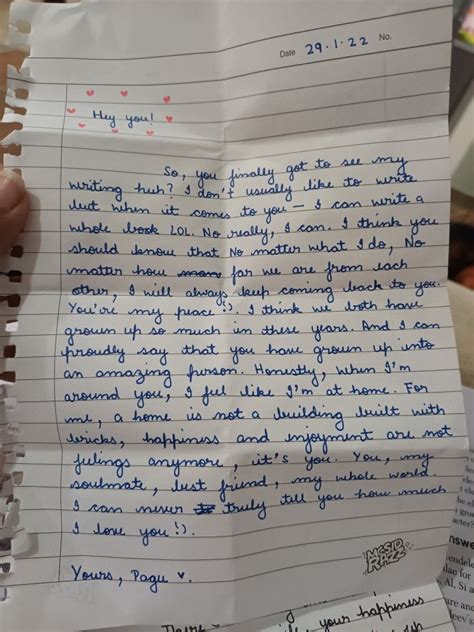 Date 29.1.22 No.
Hey you!
So, you finally got to see my
writing huh? I don't usually like to write
but when it comes to you – I can write a
whole book LOL. No really, I can. I think you
should know that No matter what I do, No
matter how far we are from each
other, I will always keep coming back to you.
You're my peace :). I think we both have
grown up so much in these years. And I can
proudly say that you have grown up into
an amazing person. Honestly, when I'm
around you, I feel like I'm at home. For
me, a home is not a building built with
bricks, happiness and enjoyment are not
feelings anymore, it's you. You, my
soulmate, best friend, my whole world.
I can never truly tell you how much
I love you :).
Yours, Pagu
your happiness